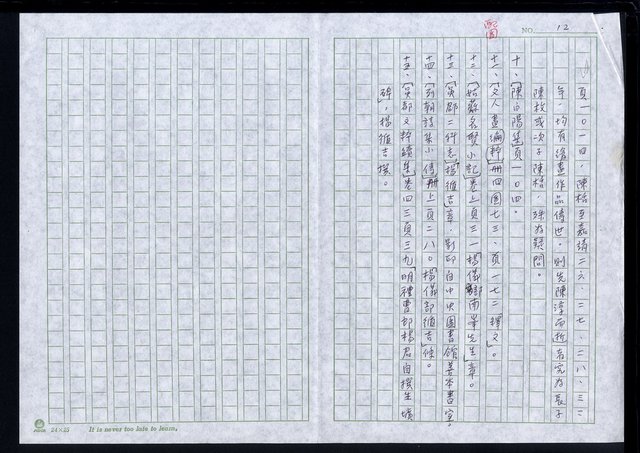 配圖
NO. 12
頁一〇一四，陳栝至嘉靖二六、二七、二八、三二
年，均有繪畫作品傳世。則先陳淳而逝者究為長子
陳枚或次子陳栝，殊為疑問。
十、「陳白陽集」頁一〇四。
十一、「文人畫編粹」冊四圖七三，頁一七二釋文。
十二、「姑蘇名賢小記」卷上頁三一楊儀部南峯先生章。
十三、「吳郡二科志」楊循吉章，劉邱自中央圖書館善本書室。
十四、「列朝詩集小傳」冊上頁二八〇「楊儀部循吉」條。
十五、「吳都文粹續集」卷四三頁三九「明禮曹郎楊君自撰生壙
碑」，楊循吉撰。
24×25 It is never too late to learn.